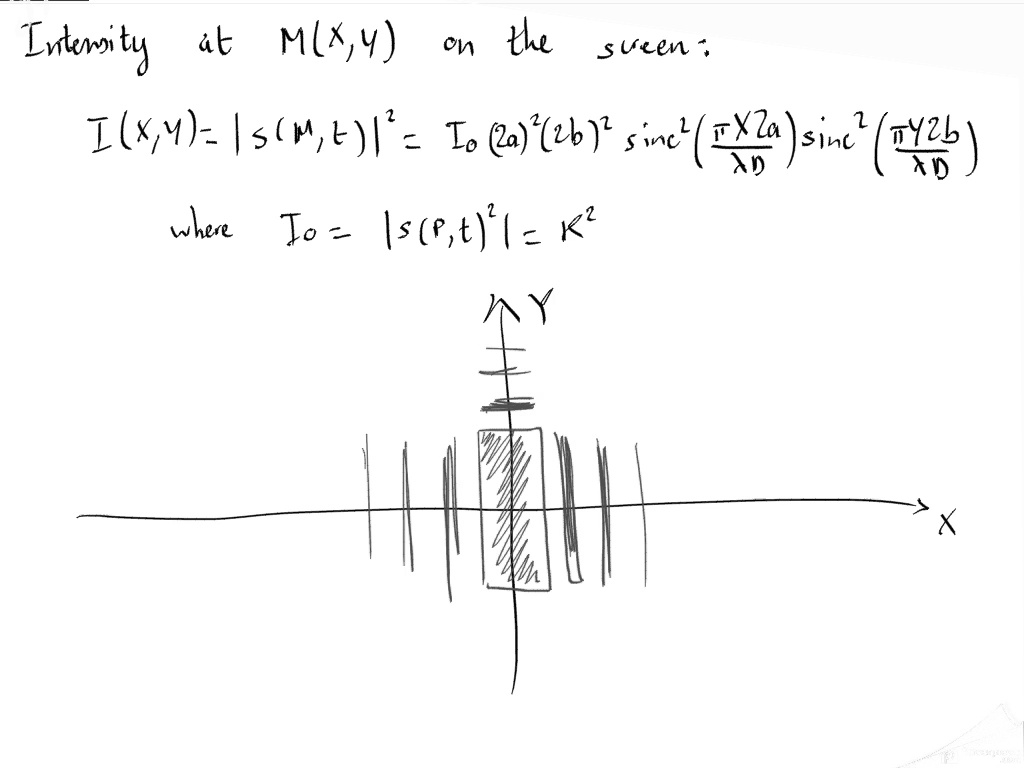 Intensity at M(X,Y) on the screen:
I(X,Y)= |s(M,t)|² = I₀ (2a)²(2b)² sinc²(πX2a/λD) sinc²(πY2b/λD)
where I₀ = |s(P,t)²| = K²
Y
X